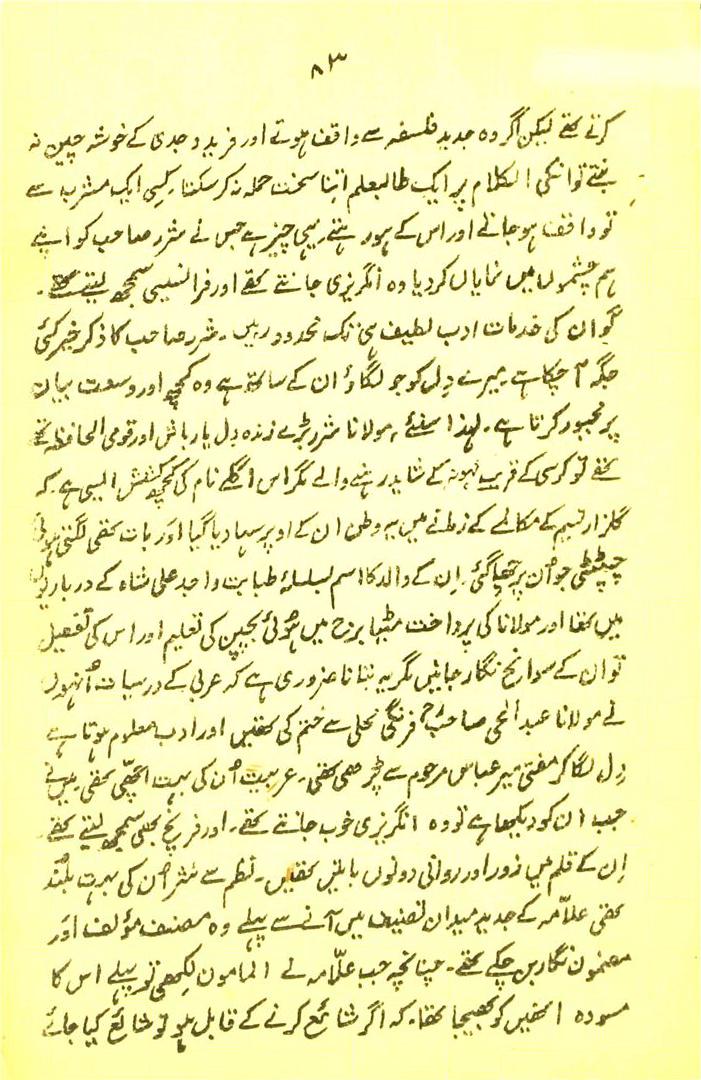 ۸۳
کرتے تھے لیکن اگر وہ جدید فلسفہ سے واقف ہوتے اور فرید وجدی کے خوشہ چین نہ
بنتے تو انکی الکلام پر ایک طالبعلم اتنا سخت حملہ نہ کرسکتا۔ کسی ایک مشرب سے
تو واقف ہو جاتے اور اس کے ہو رہتے یہی چیز ہے جس نے شرر صاحب کو اپنے
ہم چشموں میں نمایاں کر دیا وہ انگریزی جانتے تھے اور فرانسیسی سمجھ لیتے تھے۔
گو ان کی خدمات ادب لطیف ہی تک محدود رہیں۔ شرر صاحب کا ذکر خیر کئی
جگہ آ چکا ہے۔ میرے دل کو جو لگاؤ ان کے ساتھ ہے وہ کچھ اور وسعت بیان
پر مجبور کرتا ہے۔ لہذا سنئے، مولانا شرر بڑے زندہ دل یار باش اور قومی الحافظہ تھے
تھے تو کرسی کے قریب کے شاید رہنے والے مگر اس اگلے نام کی کچھ کشش ایسی ہے۔ کہ
گلزار نسیم کے مکالمے کے زمانے میں یہ وطن ان کے اوپر سہا دیا گیا اور بات تھی لگتی ہوئی
چپٹی جو اُن پر چھا گئی۔ اِن کے والد کا اسم بسلسلۂ طبابت واجد علی شاہ کے درباریوں
میں تھا اور مولانا کی پرداخت مٹیا برج میں ہوئی بچپن کی تعلیم اور اس کی تفصیل
تو ان کے سوانح نگار جانیں مگر یہ بتانا ضروری ہے کہ عربی کے درسیات اُنہوں
نے مولانا عبدالحی صاحبؒ فرنگی محلی سے ختم کی تھیں اور ادب معلوم ہوتا ہے
دِل لگا کر مفتی میر عباس مرحوم سے پڑھی تھی۔ عربیت اُن کی بہت اچھی تھی میں نے
جب ان کو دیکھا ہے تو وہ انگریزی خوب جانتے تھے۔ اور فرنچ بھی سمجھ لیتے تھے
اِن کے قلم میں زور اور روانی دونوں باتیں تھیں۔ نظم سے نثر اُن کی بہت بلند
تھی علاّمہ کے جدید میدان تصنیف میں آنے سے پہلے وہ مصنف مؤلف اور
مضمون نگار بن چکے تھے۔ چنانچہ جب علّامہ نے المامون لِکھی تو پہلے اس کا
مسودہ انھیں کو بھیجا تھا۔ کہ اگر شائع کرنے کے قابل ہو تو شائع کیا جائے